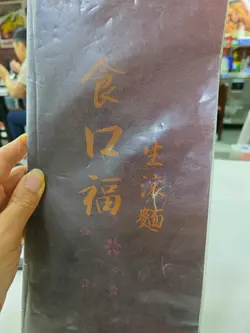 食口福
生滾麵